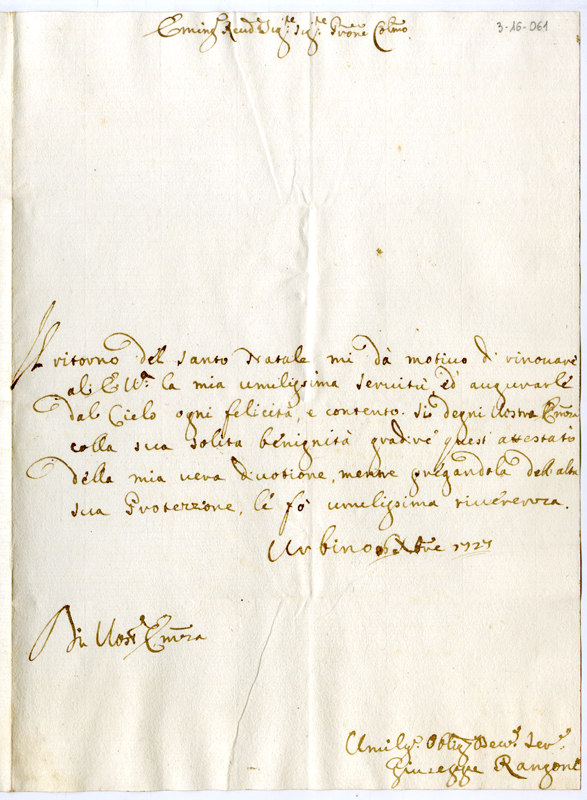 3-16-061
Eming Reud Sig.re Sig.re Prone Colmo
Il ritorno del Santo Natale mi dà motivo di rinovare
al E V.a la mia umilissima servitù ed augurarle
dal Cielo ogni felicità, e contento. Si degni Vostra Emza
colla sua solita benignità gradire quest' attestato
della mia vera divotione, mentre pregandola dell'alta
sua Protezzione, le fò umilissima riverenza.
Urbino Xbre 1727
Di Vost.a Emza
Umiliss.o Oblig Deu.o Ser.e
Giuseppe Rangoni